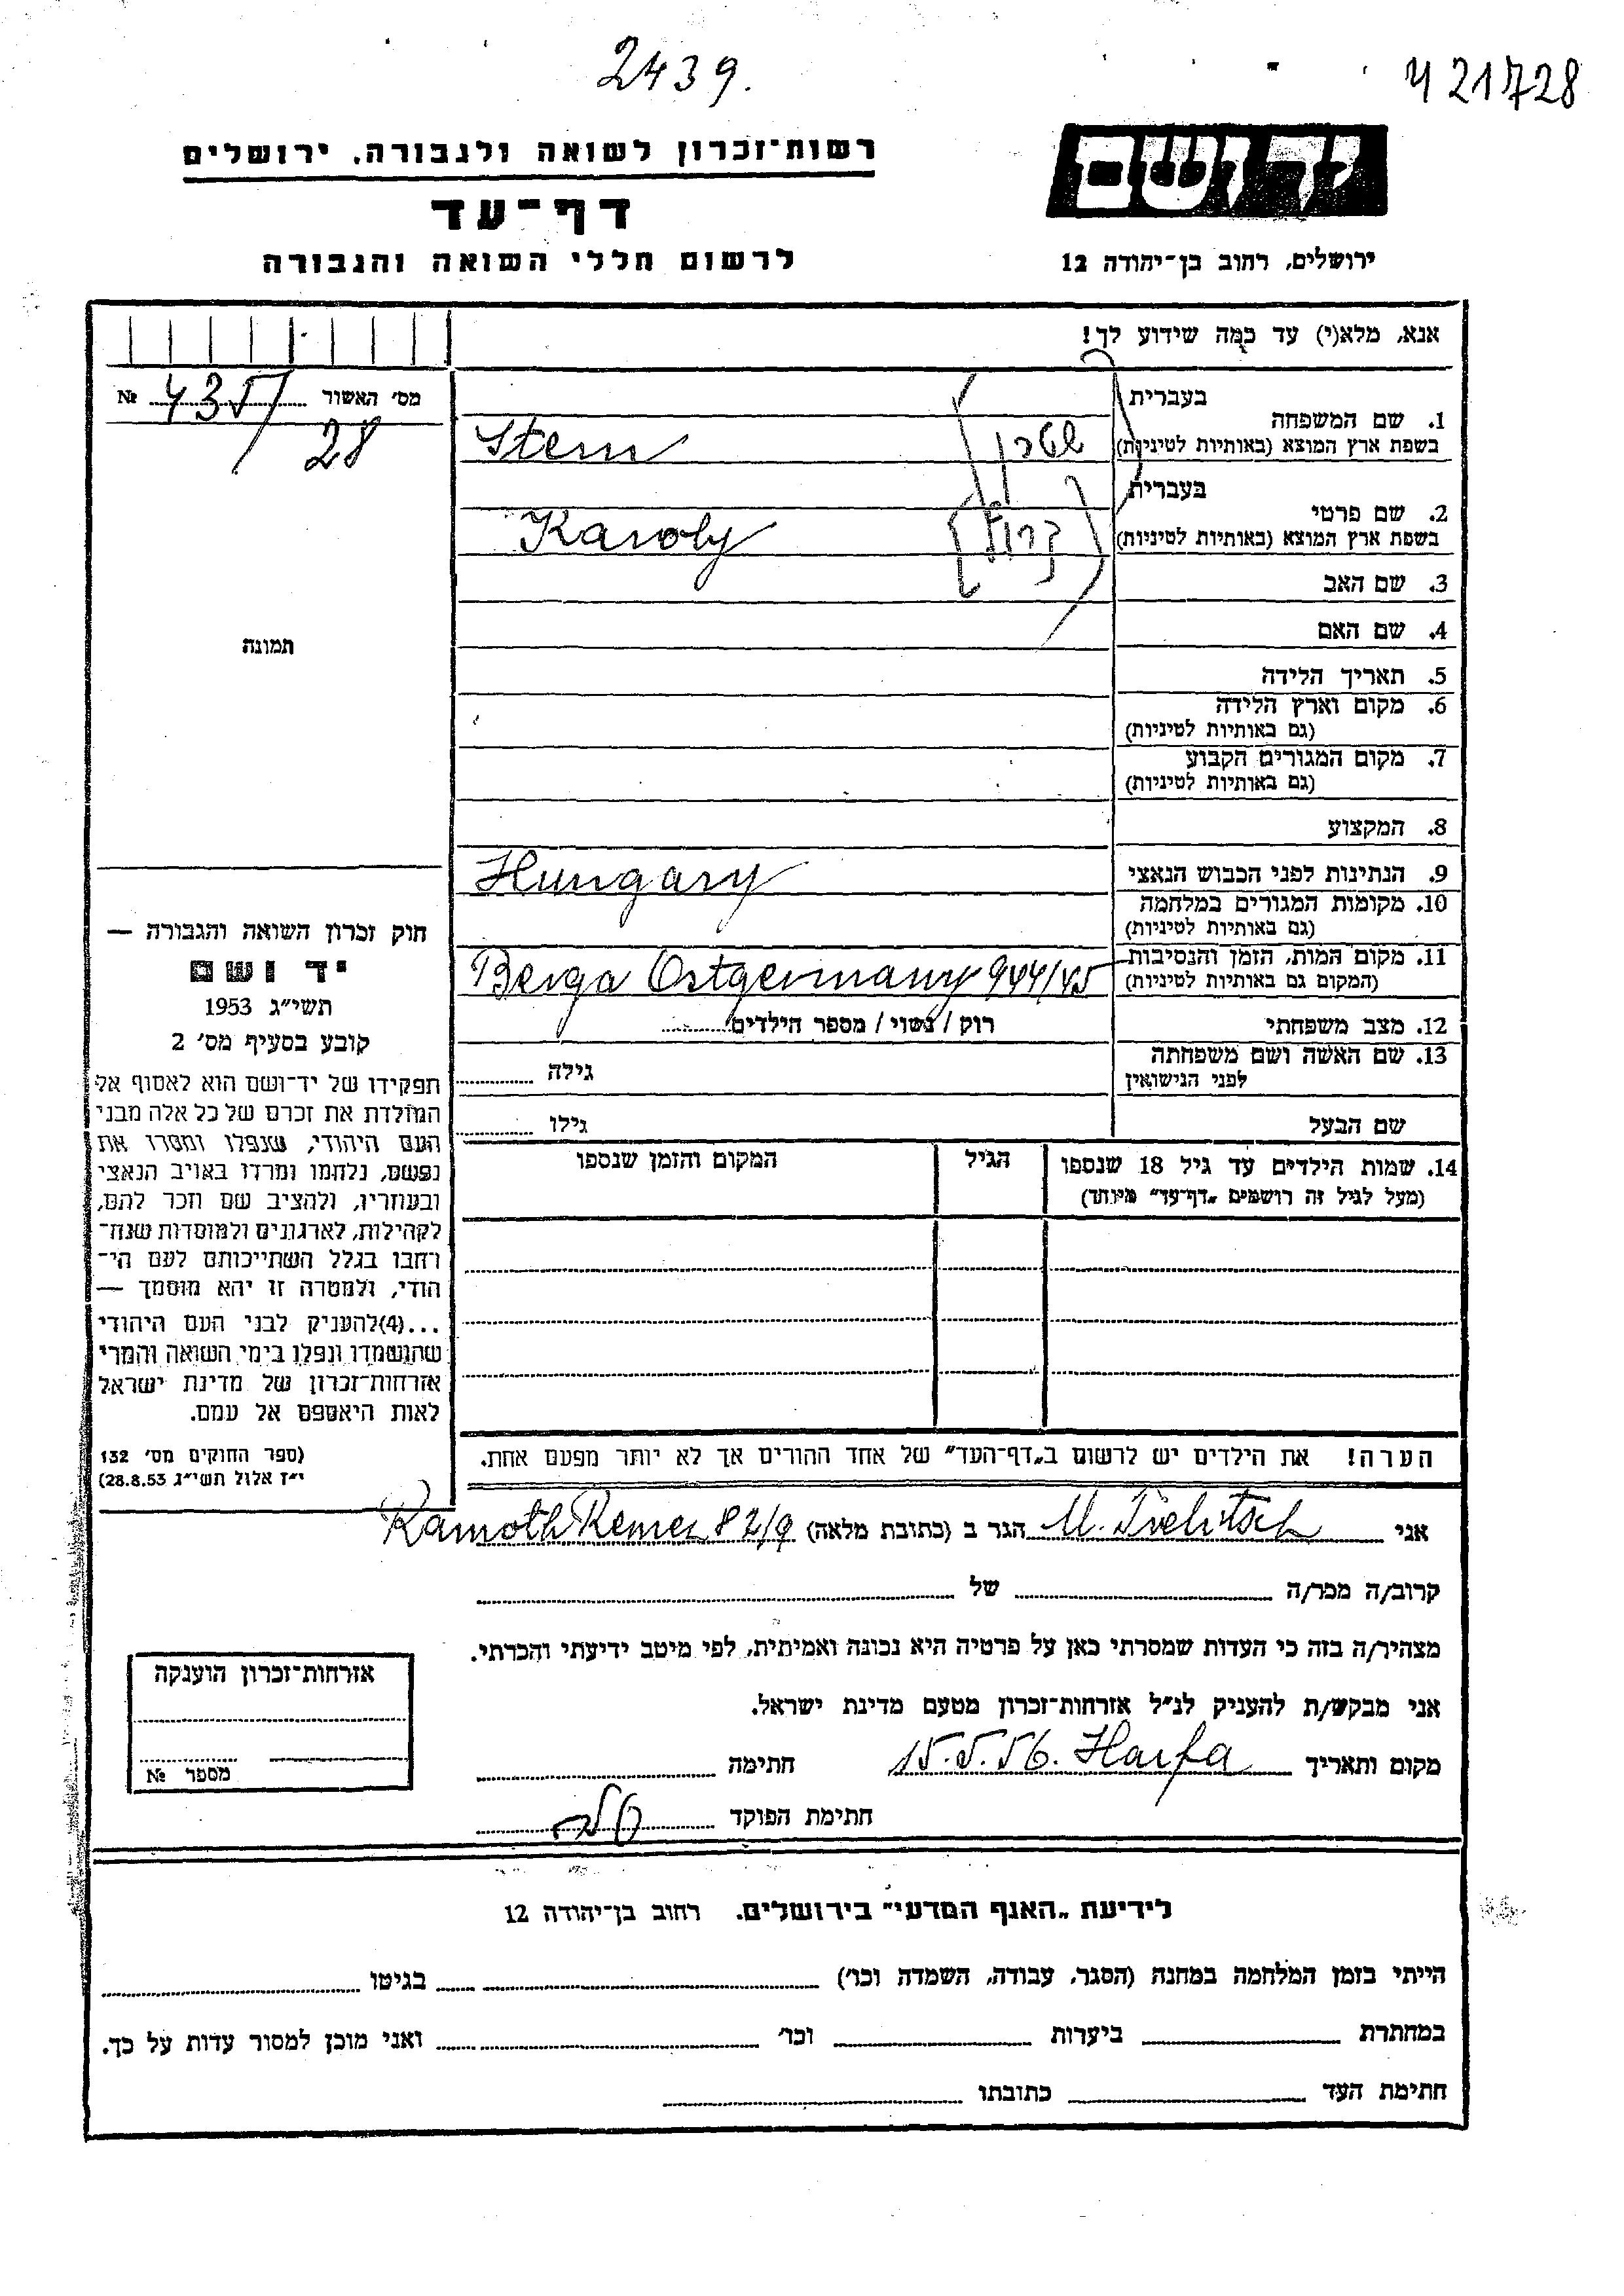 2439.
421728
יד ושם
רשות־זכרון לשואה ולגבורה, ירושלים
דף־עד
לרשום חללי השואה והגבורה
ירושלים, רחוב בן־יהודה 12
אנא, מלא(י) עד כמה שידוע לך!
מס׳ האשור № 4351/
28
תמונה
1. שם המשפחה
בעברית
שטרן
בשפת ארץ המוצא (באותיות לטיניות) Stern
2. שם פרטי
בעברית
קרולי
בשפת ארץ המוצא (באותיות לטיניות) Karoly
3. שם האב
4. שם האם
5. תאריך הלידה
6. מקום וארץ הלידה
(גם באותיות לטיניות)
7. מקום המגורים הקבוע
(גם באותיות לטיניות)
8. המקצוע
9. הנתינות לפני הכבוש הנאצי Hungary
10. מקומות המגורים במלחמה
(גם באותיות לטיניות)
11. מקום המות, הזמן והנסיבות
(המקום גם באותיות לטיניות) Berga Ostgermany 944/45
12. מצב משפחתי רוק / נשוי / מספר הילדים
13. שם האשה ושם משפחתה
לפני הנישואין
גילה
שם הבעל גילו
14. שמות הילדים עד גיל 18 שנספו
(מעל לגיל זה רושמים „דף־עד" מיוחד)
הגיל
המקום והזמן שנספו
הערה! את הילדים יש לרשום ב„דף־העד" של אחד ההורים אך לא יותר מפעם אחת.
חוק זכרון השואה והגבורה —
יד ושם
תשי״ג 1953
קובע בסעיף מס׳ 2
תפקידו של יד־ושם הוא לאסוף אל
המולדת את זכרם של כל אלה מבני
העם היהודי, שנפלו ומסרו את
נפשם, נלחמו ומרדו באויב הנאצי
ובעוזריו, ולהציב שם וזכר להם,
לקהילות, לארגונים ולמוסדות שנח־
רבו בגלל השתייכותם לעם הי־
הודי, ולמטרה זו יהא מוסמך —
...(4)להעניק לבני העם היהודי
שהושמדו ונפלו בימי השואה והמרי
אזרחות־זכרון של מדינת ישראל
לאות היאספם אל עמם.
(ספר החוקים מס׳ 132
י״ז אלול תשי״ג 28.8.53)
אני M. הגר ב (כתובת מלאה) Ramoth Remez 82/9
קרוב/ה מכר/ה של
מצהיר/ה בזה כי העדות שמסרתי כאן על פרטיה היא נכונה ואמיתית, לפי מיטב ידיעתי והכרתי.
אני מבקש/ת להעניק לנ״ל אזרחות־זכרון מטעם מדינת ישראל.
מקום ותאריך 15.5.56. Haifa חתימה
חתימת הפוקד
אזרחות־זכרון הוענקה
מספר №
לידיעת „האגף המדעי" בירושלים. רחוב בן־יהודה 12
הייתי בזמן המלחמה במחנה (הסגר, עבודה, השמדה וכו׳) בגיטו
במחתרת ביערות וכו׳ ואני מוכן למסור עדות על כך.
חתימת העד כתובתו